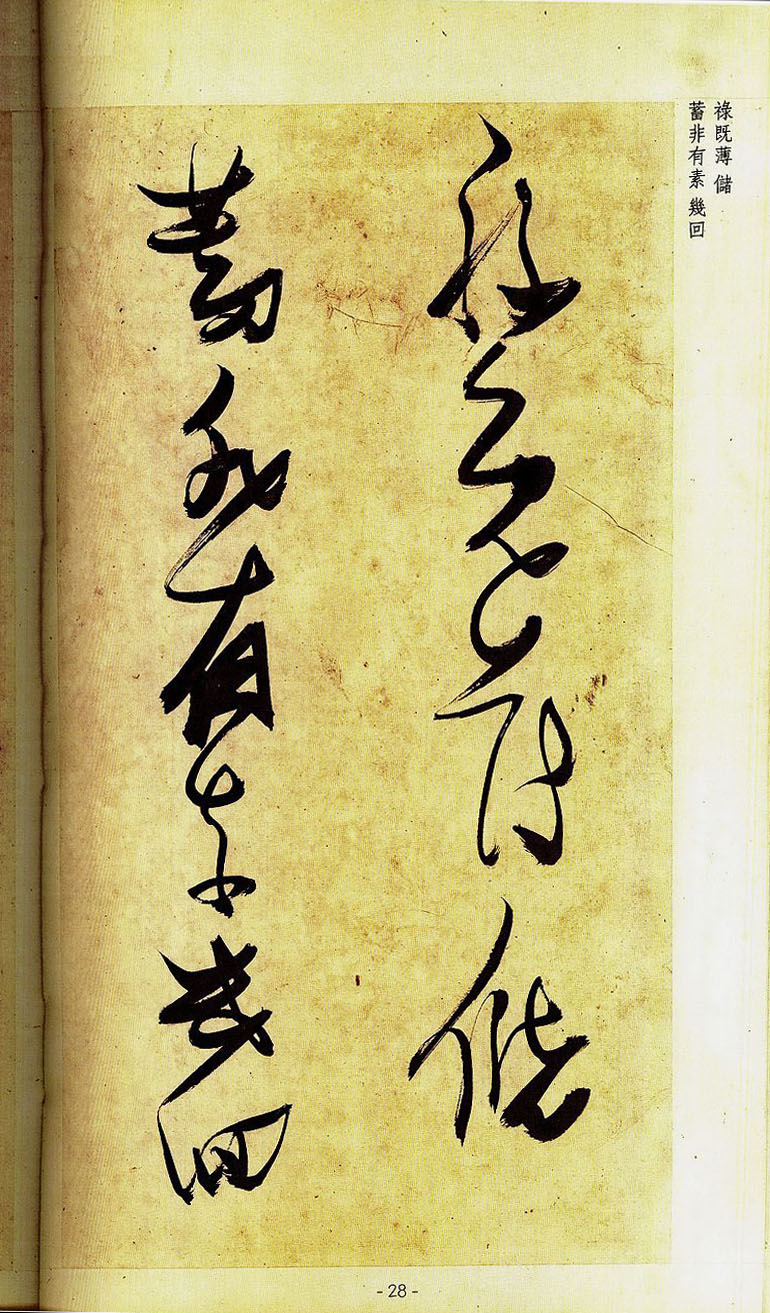 祿既薄 儲
蓄非有素 幾回
祿既薄儲
蓄非有素幾回
- 28 -